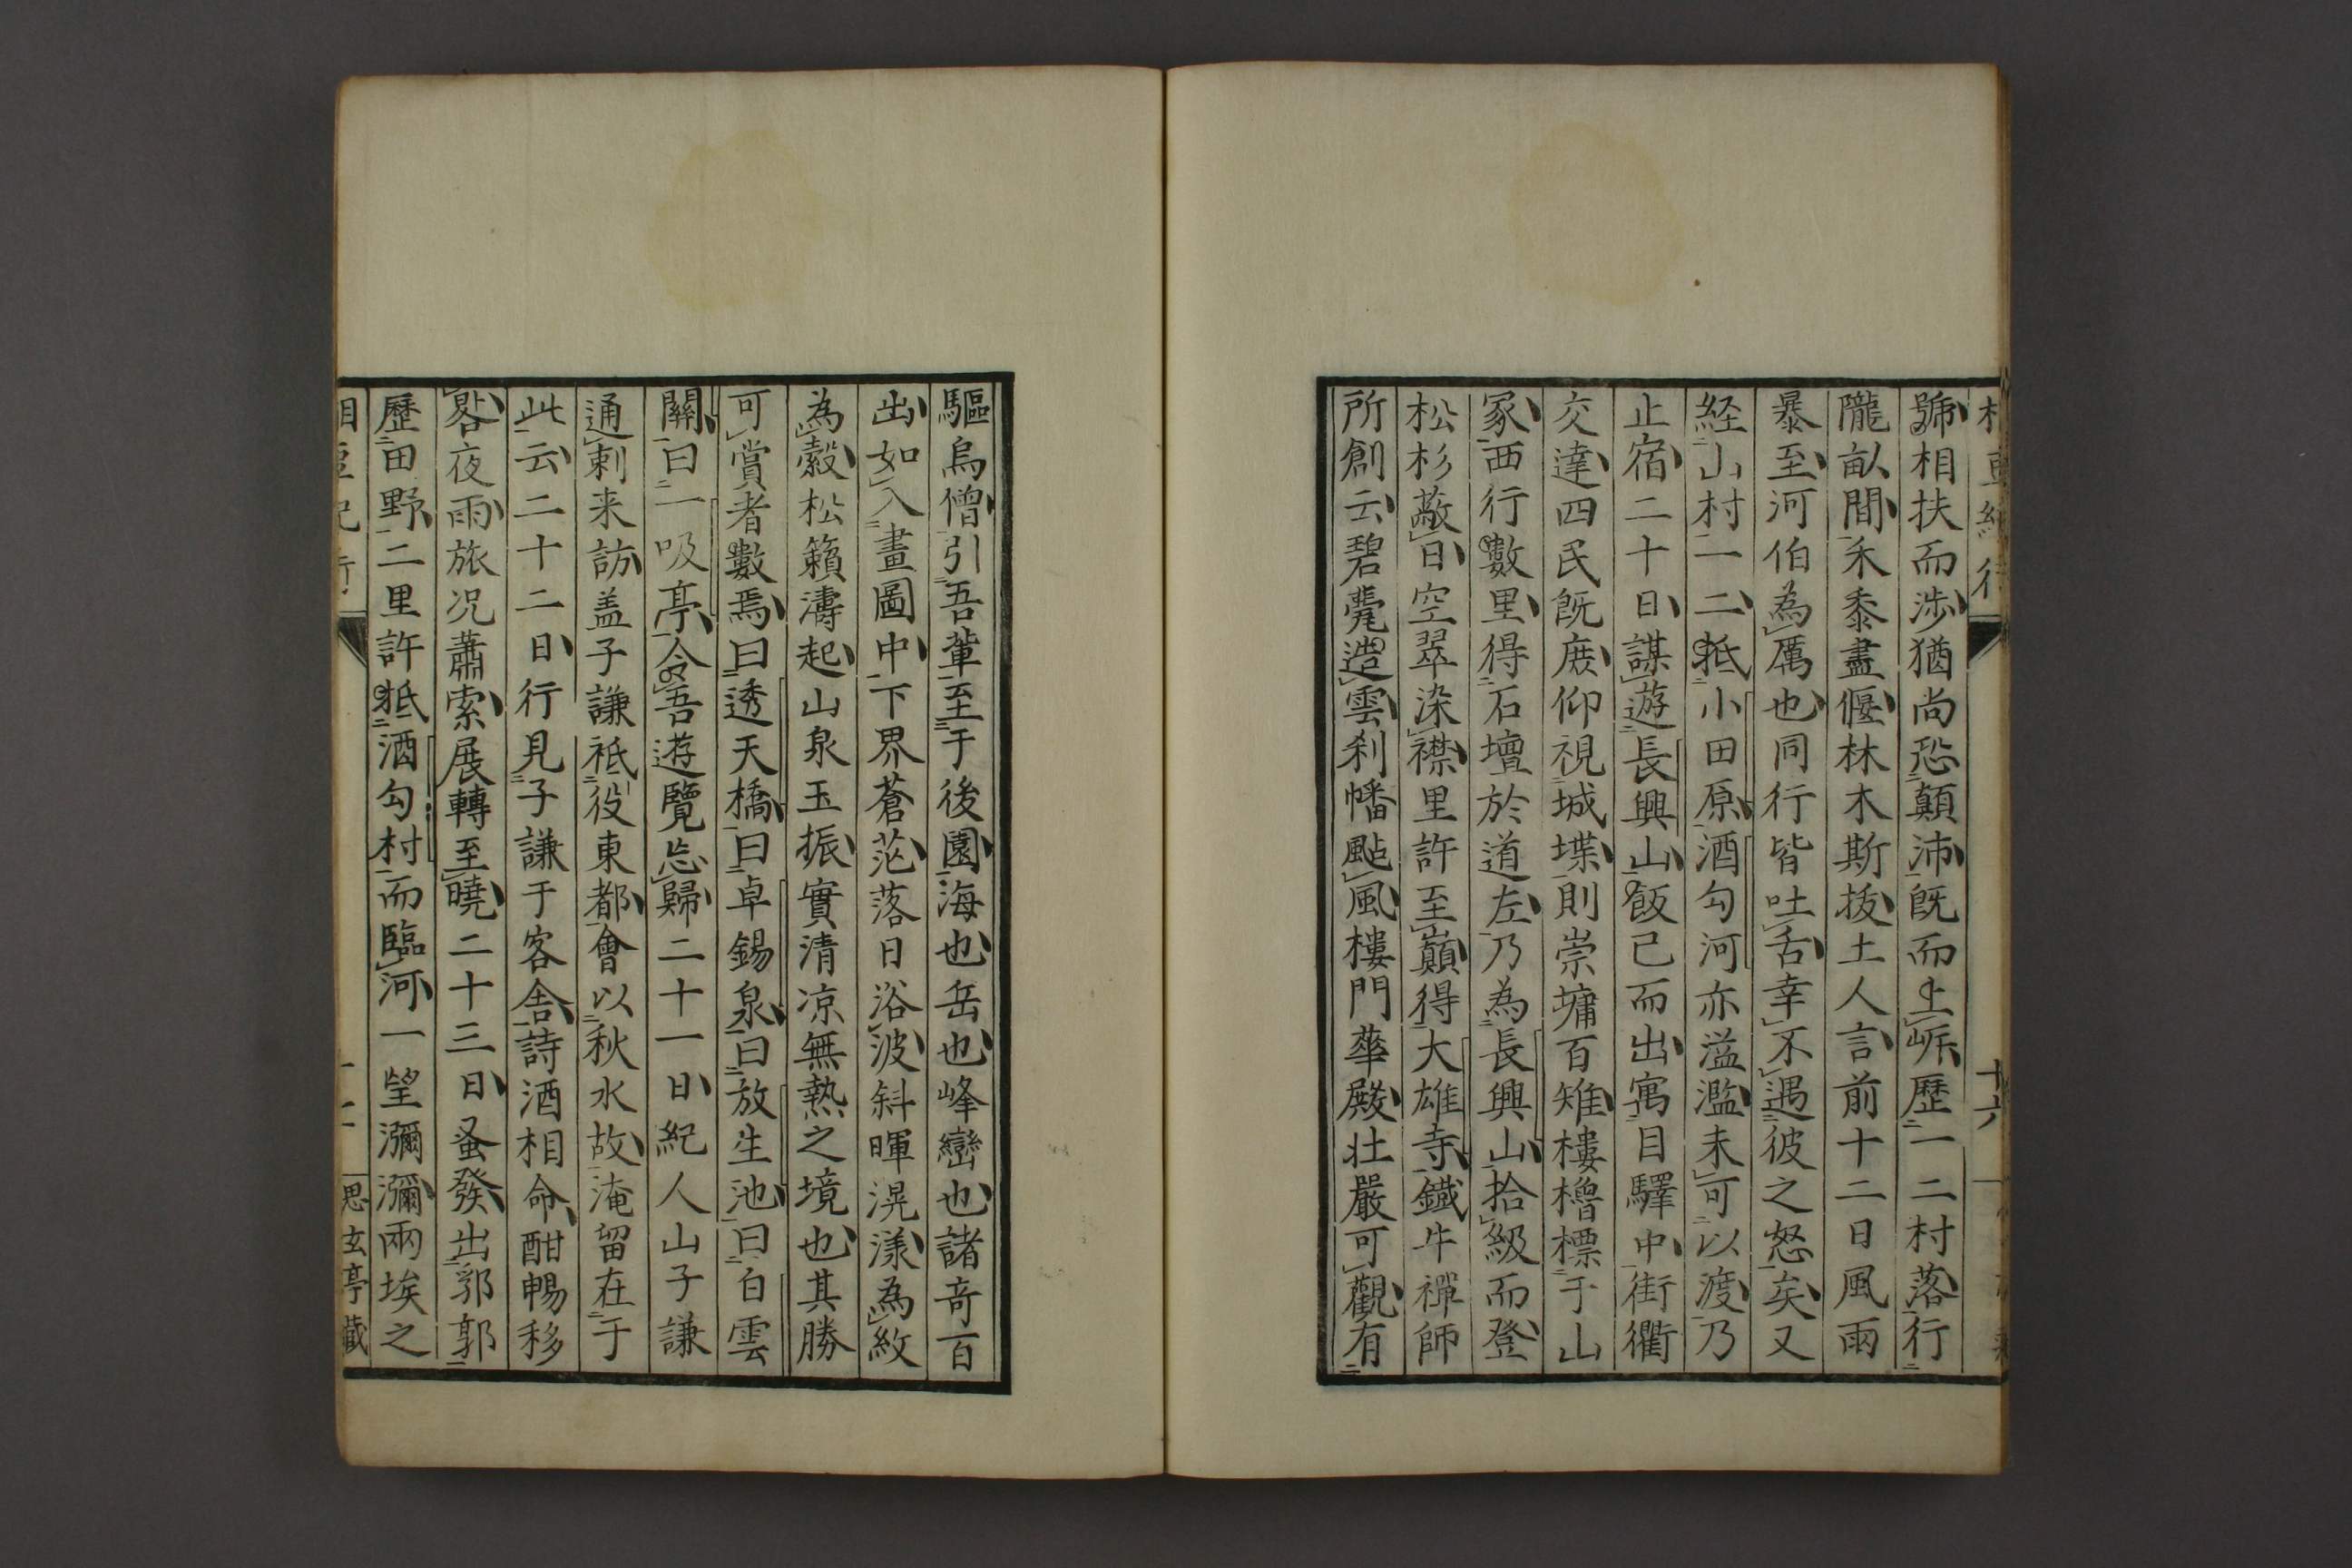 十六
號相扶而渉猶尚恐顛沛既而上岸歷一二村落行
隴畝間禾黍盡偃林木斯拔土人言前十二日風雨
暴至河伯為厲也同行皆吐舌幸不遇彼之怒矣又
経山村一二抵小田原酒勾河亦溢濫未可以渡乃
止宿二十日謀遊長興山飯已而出寓目驛中街衢
交達四民既庶仰視城堞則崇墉百雉樓櫓標于山
冢西行數里得石壇於道左乃為長興山拾級而登
松杉蔽日空翠染襟里許至巔得大雄寺鐵牛禪師
所創云碧甍造雲刹幡颭風樓門華殿壮嚴可觀有
驅烏僧引吾輩至于後園海也岳也峰巒也諸奇百
出如入畫圖中下界蒼茫落日浴波斜暉滉漾為紋
為縠松籟濤起山泉玉振實清凉無熱之境也其勝
可賞者數焉曰透天橋曰卓錫泉曰放生池曰白雲
關曰一吸亭令吾遊覽忘歸二十一日紀人山子謙
通刺来訪盖子謙祇役東都會以秋水故淹留在于
此云二十二日行見子謙于客舎詩酒相命酣暢移
晷夜雨旅况蕭索展轉至曉二十三日蚤發出郛郭
歷田野二里許抵酒勾村而臨河一望瀰瀰兩埃之
思玄亭藏